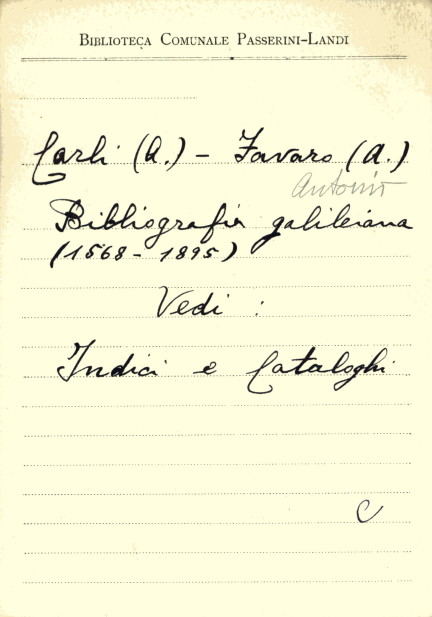 BIBLIOTECA COMUNALE PASSERINI-LANDI
Carli (A.) - Favaro (A.)
Antonio
Bibliografia galileiana
(1568 - 1895)
Vedi :
Indici e Cataloghi
C